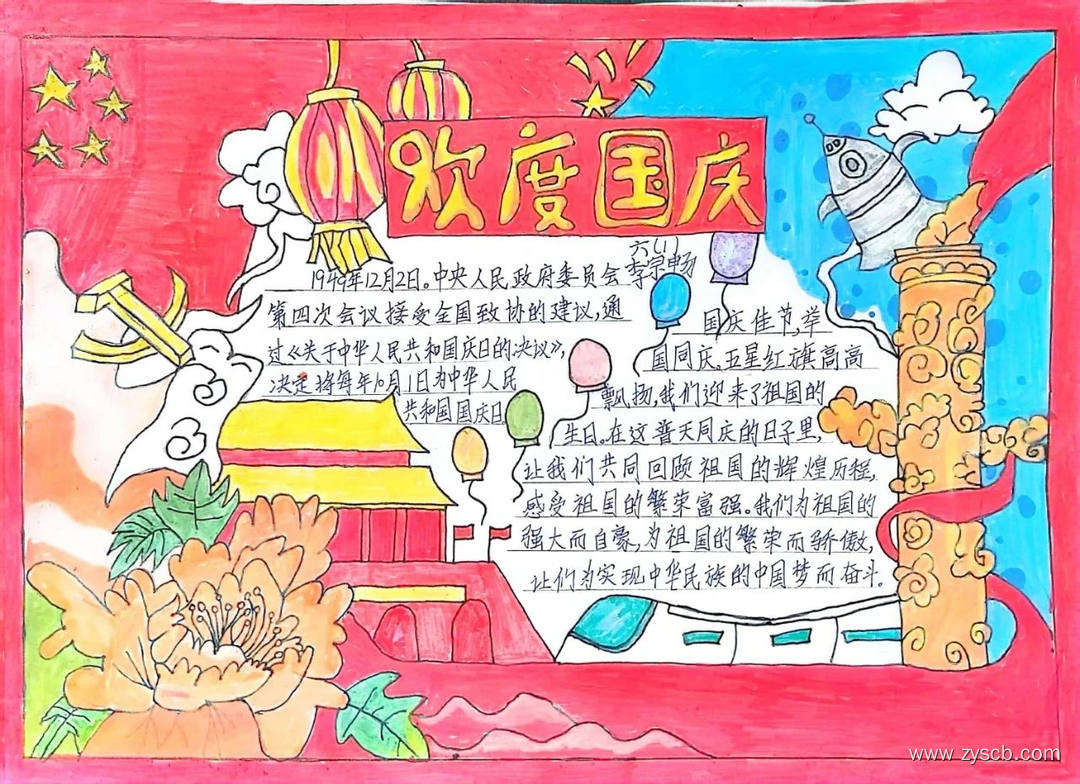 欢度国庆
六(1)
李宗畅
1949年12月2日。中央人民政府委员会
第四次会议接受全国政协的建议,通
过《关于中华人民共和国庆日的决议》,
决定将每年10月1日为中华人民
共和国国庆日
国庆佳节,举
国同庆,五星红旗高高
飘扬,我们迎来了祖国的
生日。在这普天同庆的日子里,
让我们共同回顾祖国的辉煌历程,
感受祖国的繁荣富强。我们为祖国的
强大而自豪,为祖国的繁荣而骄傲,
让们为实现中华民族的中国梦而奋斗.
www.zyscb.com